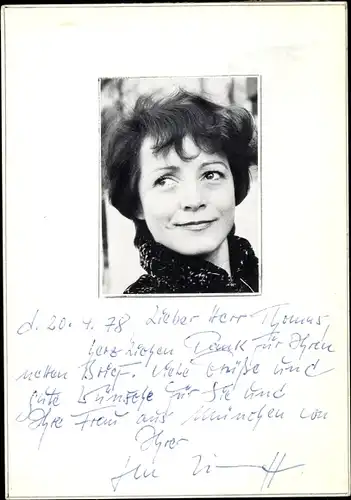 d. 20. 4. 78 Lieber Herr Thomas,
herzlichen Dank für Ihren
netten Brief. Viele Grüße und
gute Wünsche für Sie und
Ihre Frau aus München von
Ihrer